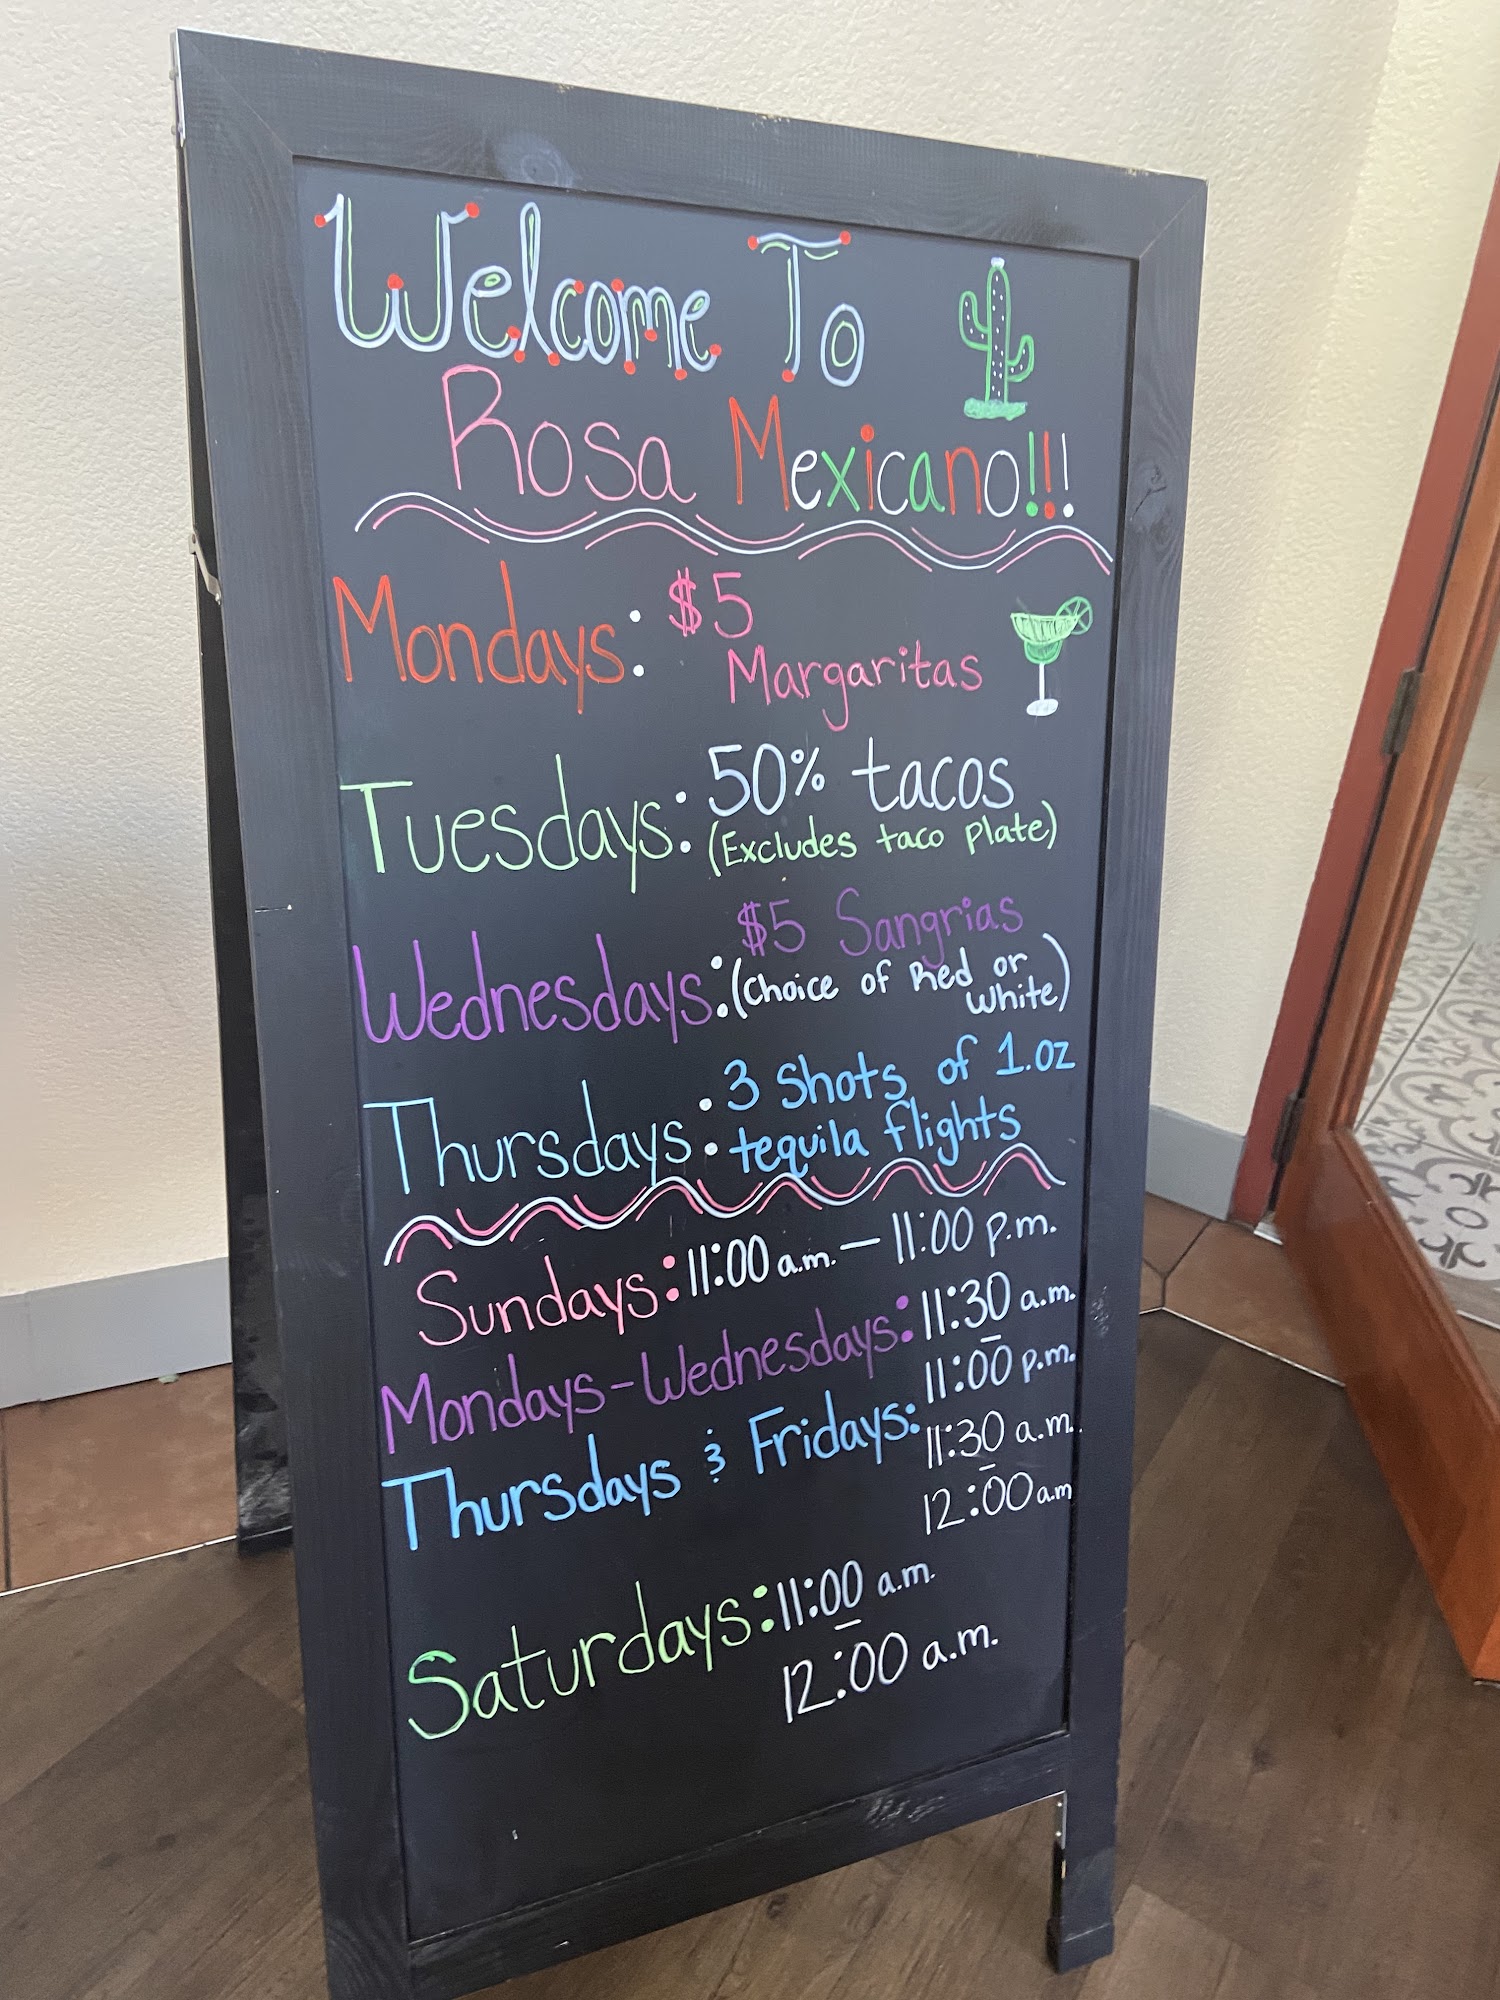 Welcome To
Rosa Mexicano!!!
Mondays: $5
Margaritas
Tuesdays: 50% tacos
(Excludes taco plate)
$5 Sangrias
Wednesdays: (choice of Red or
white)
Thursdays: 3 shots of 1.oz
tequila flights
Sundays: 11:00 a.m. — 11:00 p.m.
Mondays - Wednesdays: 11:30 a.m.
–
11:00 p.m.
Thursdays & Fridays: 11:30 a.m.
–
12:00 a.m
Saturdays: 11:00 a.m.
–
12:00 a.m.